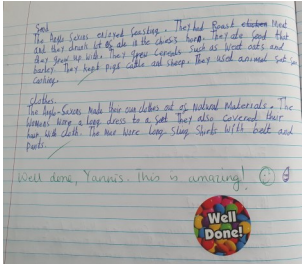 Food
The Anglo Saxons enjoyed feasting. They had Roast Meat
and they drank lot of ale in the horn. They ate food that
they grew up with. They grew cereals such as weat oats and
barley. They kept pigs cattle and sheep. They used animal fat for
cooking.
clothes.
The Anglo-Saxons made their own clothes out of Natural Materials. The
womens wore a long dress to a They also covered their
hair with cloth. The men wore long Shirts with belt and
pants.
Well done, Yannis. This is amazing!
Well
Done!